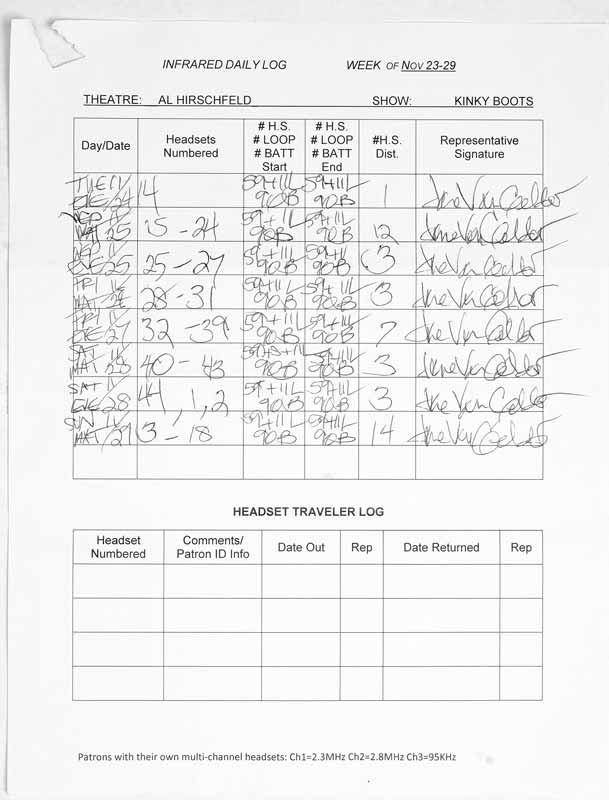 INFRARED DAILY LOG WEEK OF NOV 23-29
THEATRE: AL HIRSCHFELD SHOW: KINKY BOOTS
Day/Date Headsets Numbered # H.S. # LOOP # BATT Start # H.S. # LOOP # BATT End #H.S. Dist. Representative Signature
TUE 11/ EVE/24 14 59+11L 90B 59+11L 90B 1
WED 11/ MAT 25 15-24 59+11L 90B 59+11L 90B 12
WED 11/ EVE 25 25-27 59+11L 90B 59+11L 90B 3
FRI 11/ MAT 28-31 59+11L 90B 59+11L 90B 3
FRI 11/ EVE 27 32-39 59+11L 90B 59+11L 90B 7
SAT 11/ MAT 28 40-43 90B 59+11L 90B 3
SAT 11/ EVE 28 44, 1, 2 59+11L 90B 59+11L 90B 3
SUN 11/ MAT/29 3-18 59+11L 90B 59+11L 90B 14
HEADSET TRAVELER LOG
Headset Numbered Comments/ Patron ID Info Date Out Rep Date Returned Rep
Patrons with their own multi-channel headsets: Ch1=2.3MHz Ch2=2.8MHz Ch3=95KHz